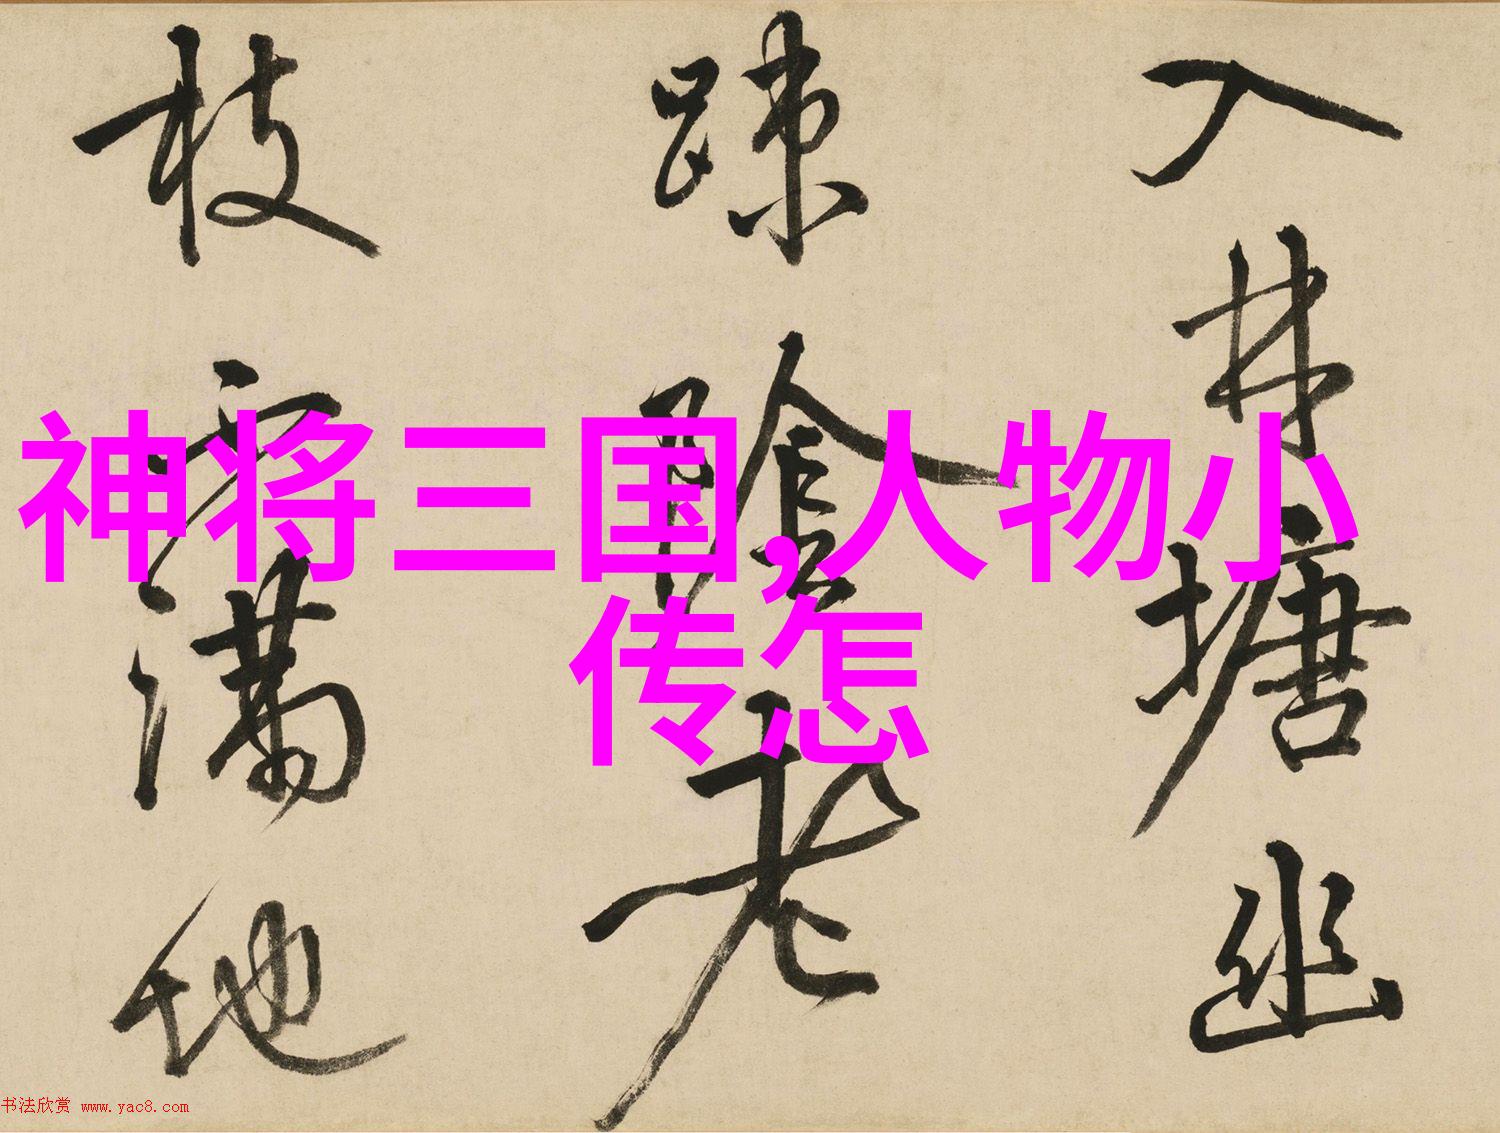 入林塘幽
踈陰老
枝滿地
神将三国,人物小
传怎
书法欣赏 www.yac8.com